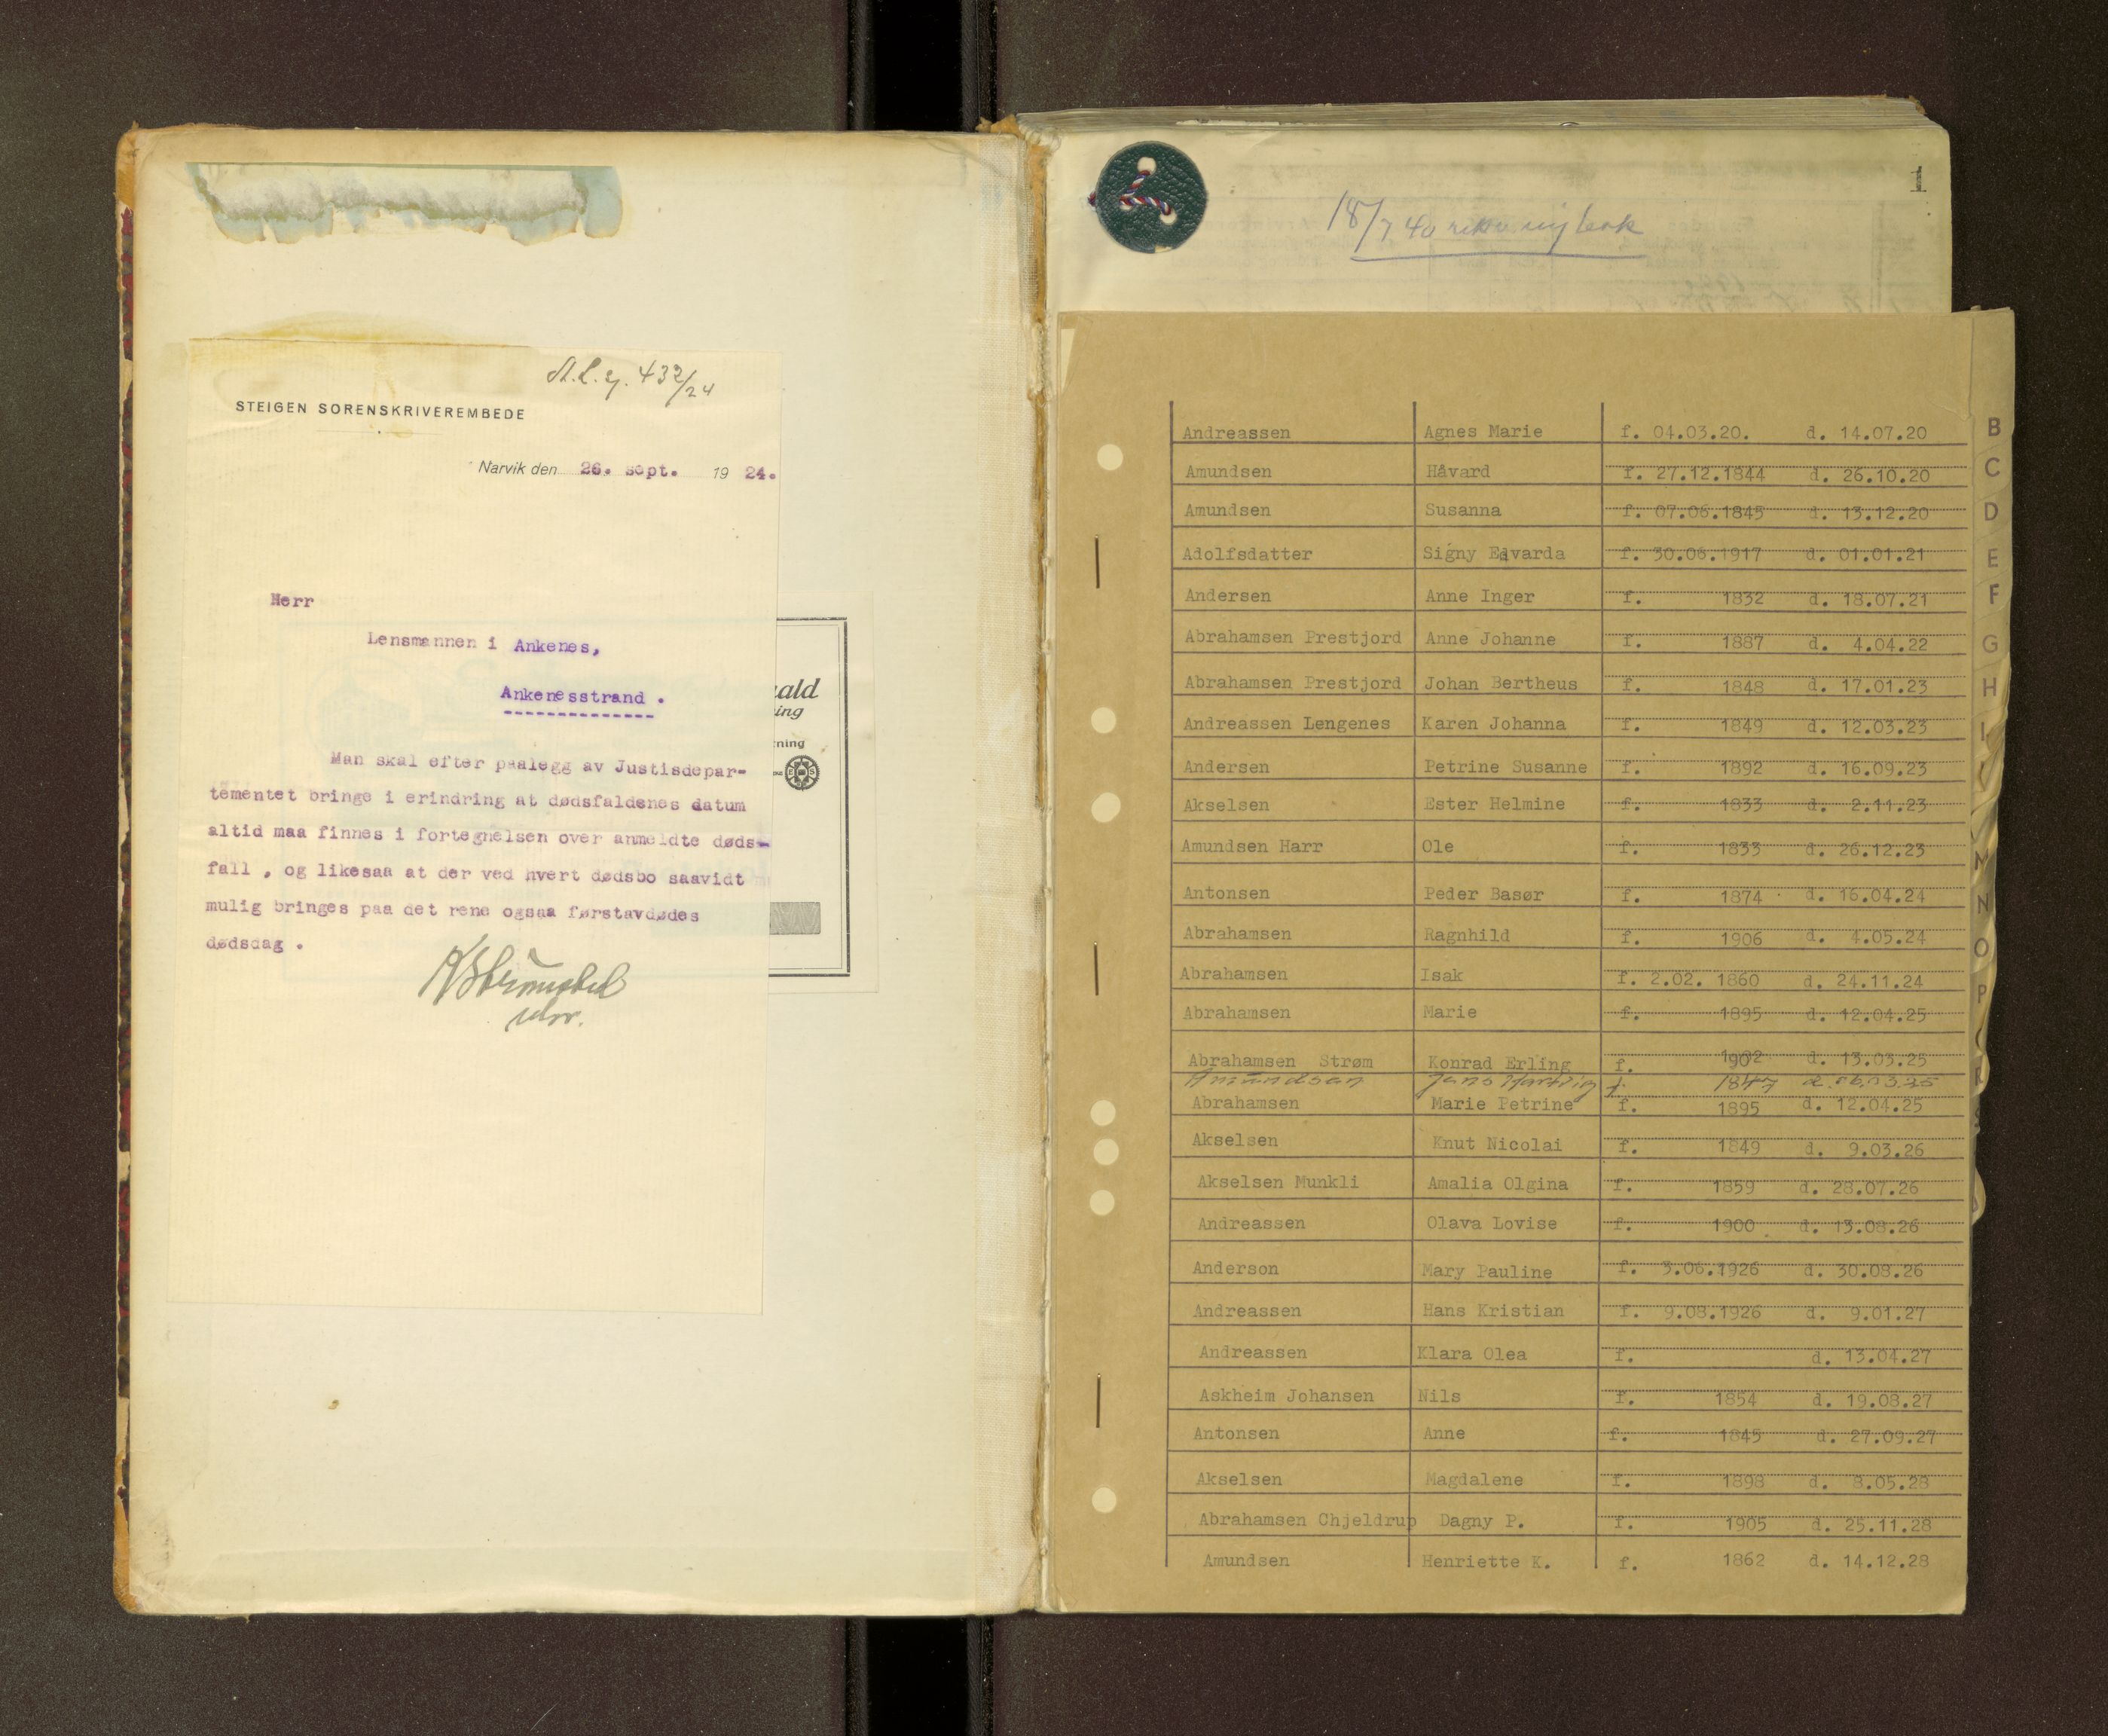 432/24
STEIGEN SORENSKRIVEREMBEDE
Narvik den 26. sept. 19 24.
Herr
Lensmannen i Ankenes,
Ankenesstrand .
Man skal efter paalegg av Justisdepar-
tementet bringe i erindring at dødsfaldenes datum
altid maa finnes i fortegnelsen over anmeldte døds-
fall , og likesaa at der ved hvert dødsbo saavidt
mulig bringes paa det rene ogsaa førstavdødes
dødsdag .
ald
ing
ning
1
18/7 40
Andreassen Agnes Marie f. 04.03.20. d. 14.07.20
Amundsen Håvard f. 27.12.1844 d. 26.10.20
Amundsen Susanna f. 07.06.1845 d. 13.12.20
Adolfsdatter Signy Edvarda f. 30.06.1917 d. 01.01.21
Andersen Anne Inger f. 1832 d. 18.07.21
Abrahamsen Prestjord Anne Johanne f. 1887 d. 4.04.22
Abrahamsen Prestjord Johan Bertheus f. 1848 d. 17.01.23
Andreassen Lengenes Karen Johanna f. 1849 d. 12.03.23
Andersen Petrine Susanne f. 1892 d. 16.09.23
Akselsen Ester Helmine f. 1833 d. 2.11.23
Amundsen Harr Ole f. 1833 d. 26.12.23
Antonsen Peder Basør f. 1874 d. 16.04.24
Abrahamsen Ragnhild f. 1906 d. 4.05.24
Abrahamsen Isak f. 2.02. 1860 d. 24.11.24
Abrahamsen Marie f. 1895 d. 12.04.25
Abrahamsen Strøm Konrad Erling f. 1902 d. 13.03.25
Amundsen Jens Hartvig f. 1847 d. 06.03.25
Abrahamsen Marie Petrine f. 1895 d. 12.04.25
Akselsen Knut Nicolai f. 1849 d. 9.03.26
Akselsen Munkli Amalia Olgina f. 1859 d. 28.07.26
Andreassen Olava Lovise f. 1900 d. 13.08.26
Anderson Mary Pauline f. 3.06.1926 d. 30.08.26
Andreassen Hans Kristian f. 9.08.1926 d. 9.01.27
Andreassen Klara Olea f. d. 13.04.27
Askheim Johansen Nils f. 1854 d. 19.08.27
Antonsen Anne f. 1845 d. 27.09.27
Akselsen Magdalene f. 1898 d. 8.05.28
Abrahamsen Chjeldrup Dagny P. f. 1905 d. 25.11.28
Amundsen Henriette K. f. 1862 d. 14.12.28
B
C
D
E
F
G
H
I
M
N
O
P
R